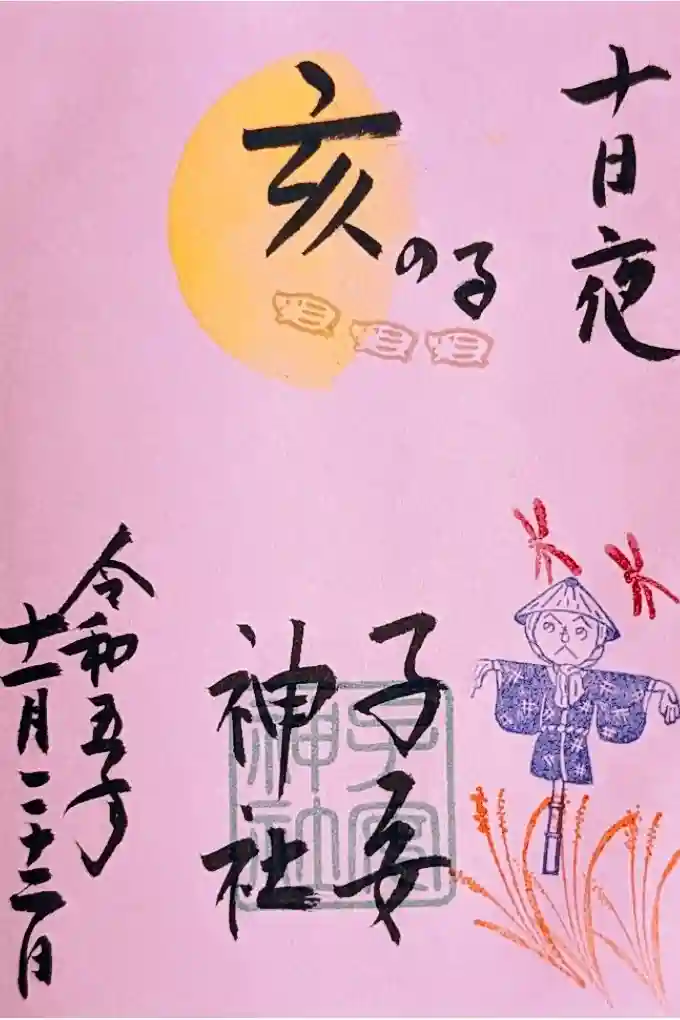 十日夜
亥の子
子安
神社
子安
神社
令和五年
十一月二十二日